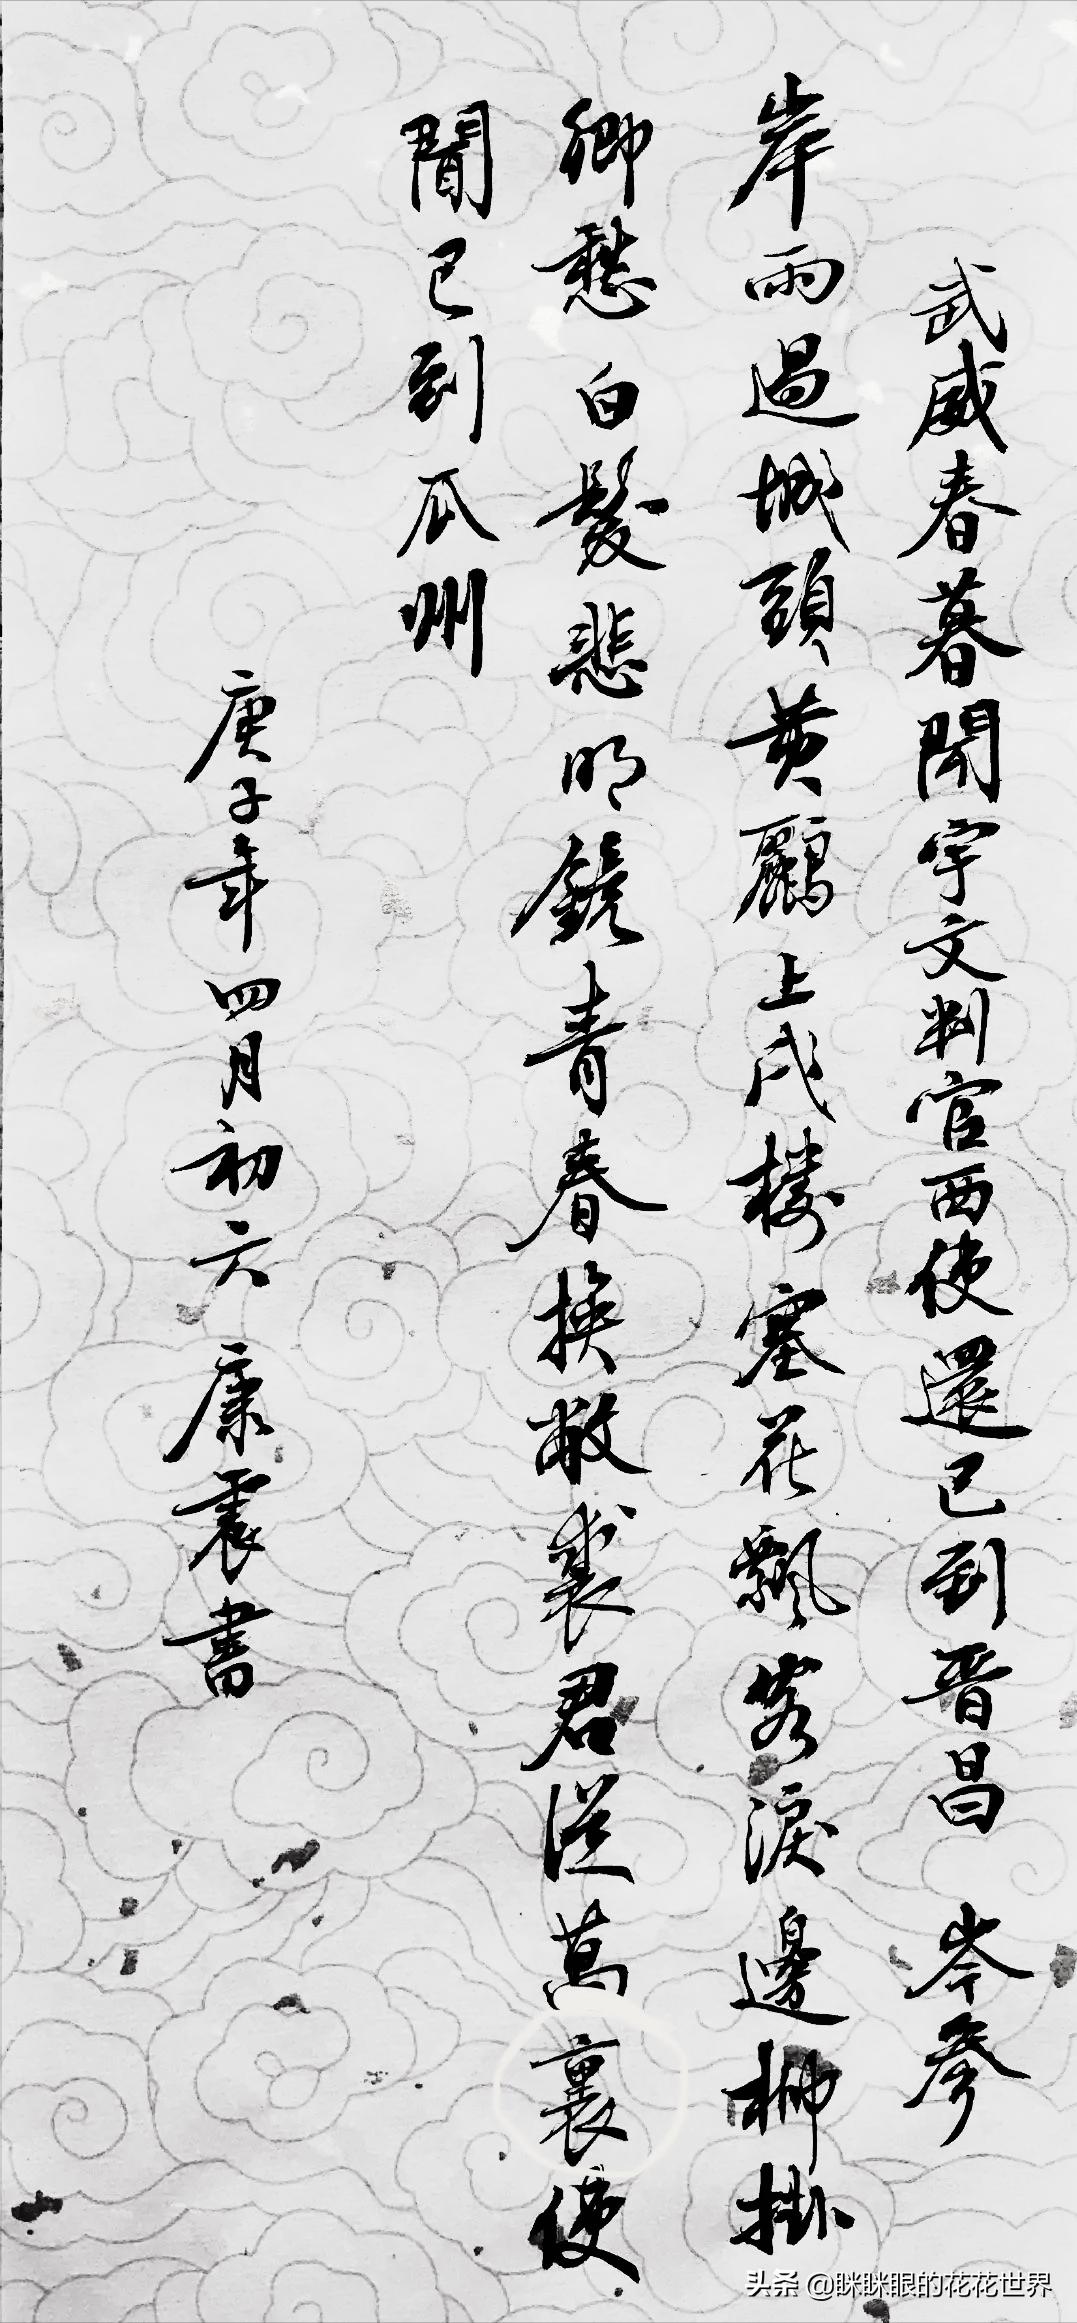 武威春暮聞宇文判官西使還已到晋昌 岑參
岸雨過城頭黄鸝上戍樓塞花飄客淚邊柳掛
鄉愁白髮悲明鏡青春換敝裘君從萬裏使
聞已到瓜州
庚子年四月初六康震書
头条 @眯眯眼的花花世界